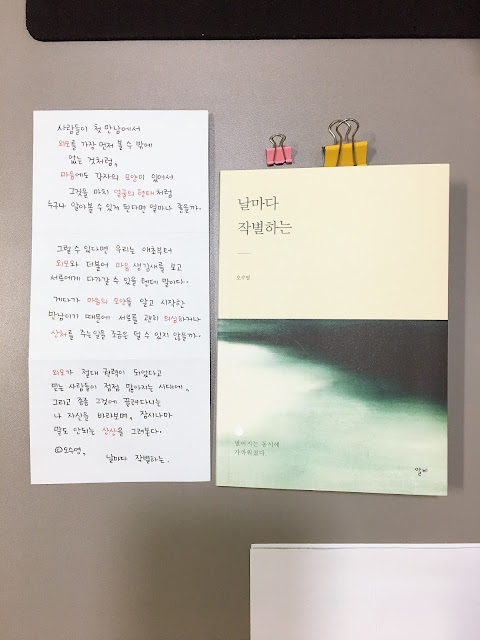 사람들이 첫 만남에서
외모를 가장 먼저 볼 수 밖에
없는 것처럼,
마음에도 각자의 모양이 있어서
그것을 마치 얼굴의 형태처럼
누구나 알아볼 수 있게 된다면 얼마나 좋을까.
그럴 수 있다면 우리는 애초부터
외모와 더불어 마음 생김새를 보고
서로에게 다가갈 수 있을 텐데 말이다.
게다가 마음의 모양을 알고 시작한
만남이기 때문에 서로를 괜히 의심하거나
상처를 주는 일을 조금은 덜 수 있지 않을까.
외모가 절대 권력이 되었다고
믿는 사람들이 점점 많아지는 시대에,
그리고 종종 그것에 끌려다니는
나 자신을 바라보며, 잠시나마
말도 안되는 상상을 그려본다.
©오수영, 날마다 작별하는.
날마다
작별하는
오수영
멀어지는 동시에
가까워진다
알비